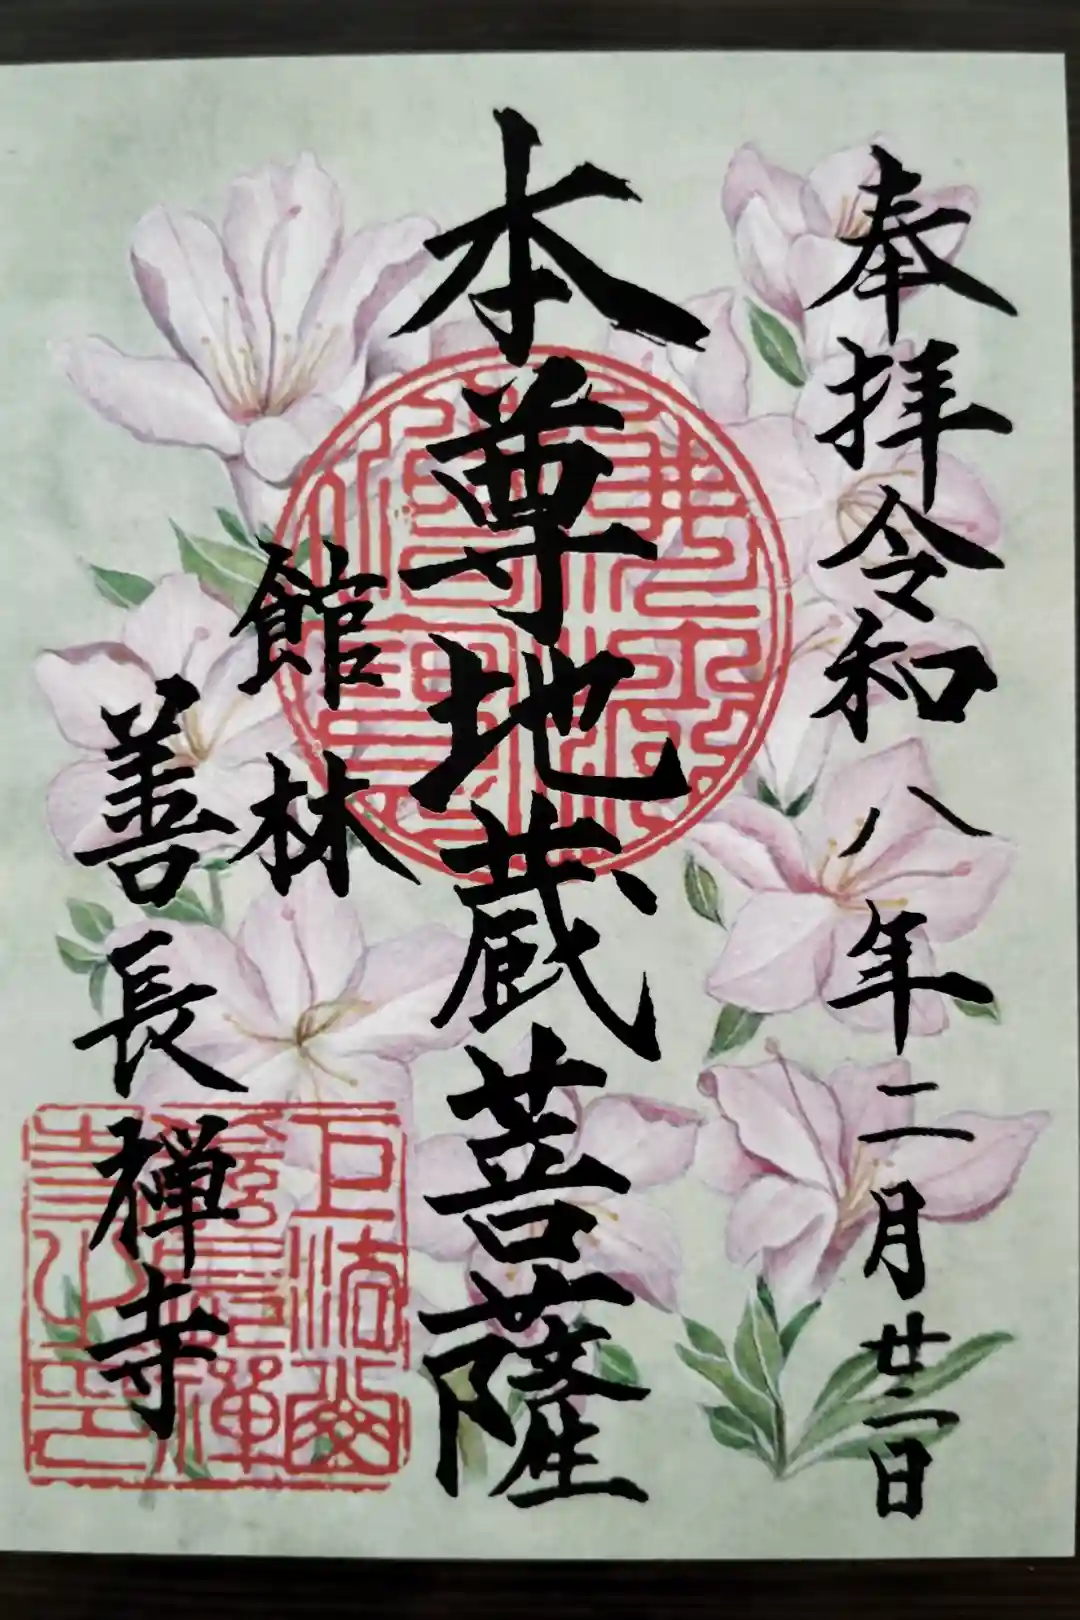 奉拝令和八年二月廿二日
本尊地蔵菩薩
館林
善長禅寺